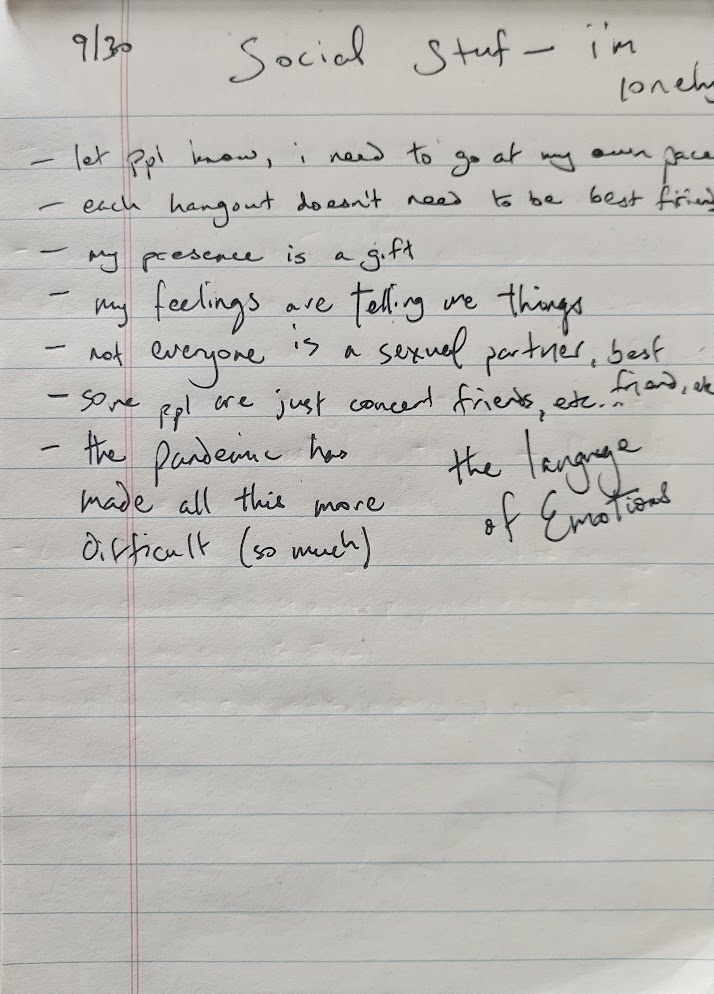 9/30 Social Stuf - i'm
lonely
- let ppl know, i need to go at my own pace
- each hangout doesn't need to be best friend
- my presence is a gift
- my feelings are telling me things
- not everyone is a sexual partner, best
friend, etc
- some ppl are just concert friends, etc...
- the pandemic has
made all this more
difficult (so much)
the language
of Emotions